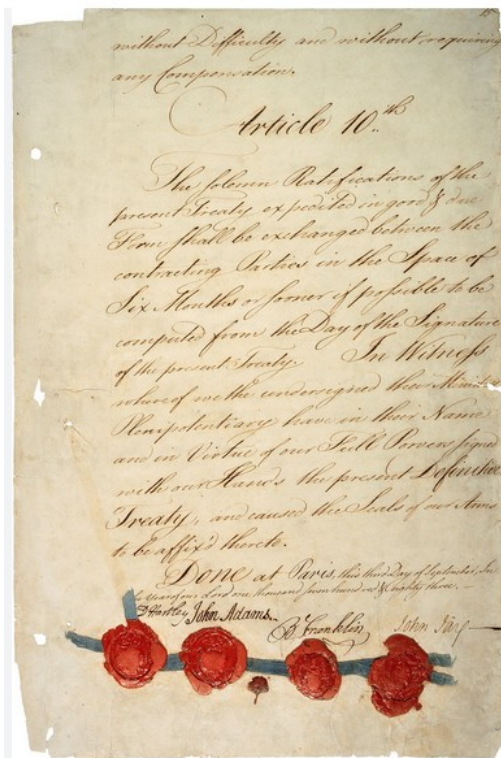 without Difficulty and without requiring
any Compensation.
Article 10.th
The solemn Ratifications of the
present Treaty expedited in good & due
Form shall be exchanged between the
contracting Parties in the Space of
Six Months or sooner if possible to be
computed from the Day of the Signature
of the present Treaty. In Witness
whereof we the undersigned their Minis
Plenipotentiary have in their Name
and in Virtue of our Full Powers signed
with our Hands the present Definitive
Treaty, and caused the Seals of our Arms
to be affix'd thereto.
Done at Paris, this third Day of September, In
Year of our Lord one thousand seven hundred & eighty three.
D Hartley John Adams. B Franklin John Jay